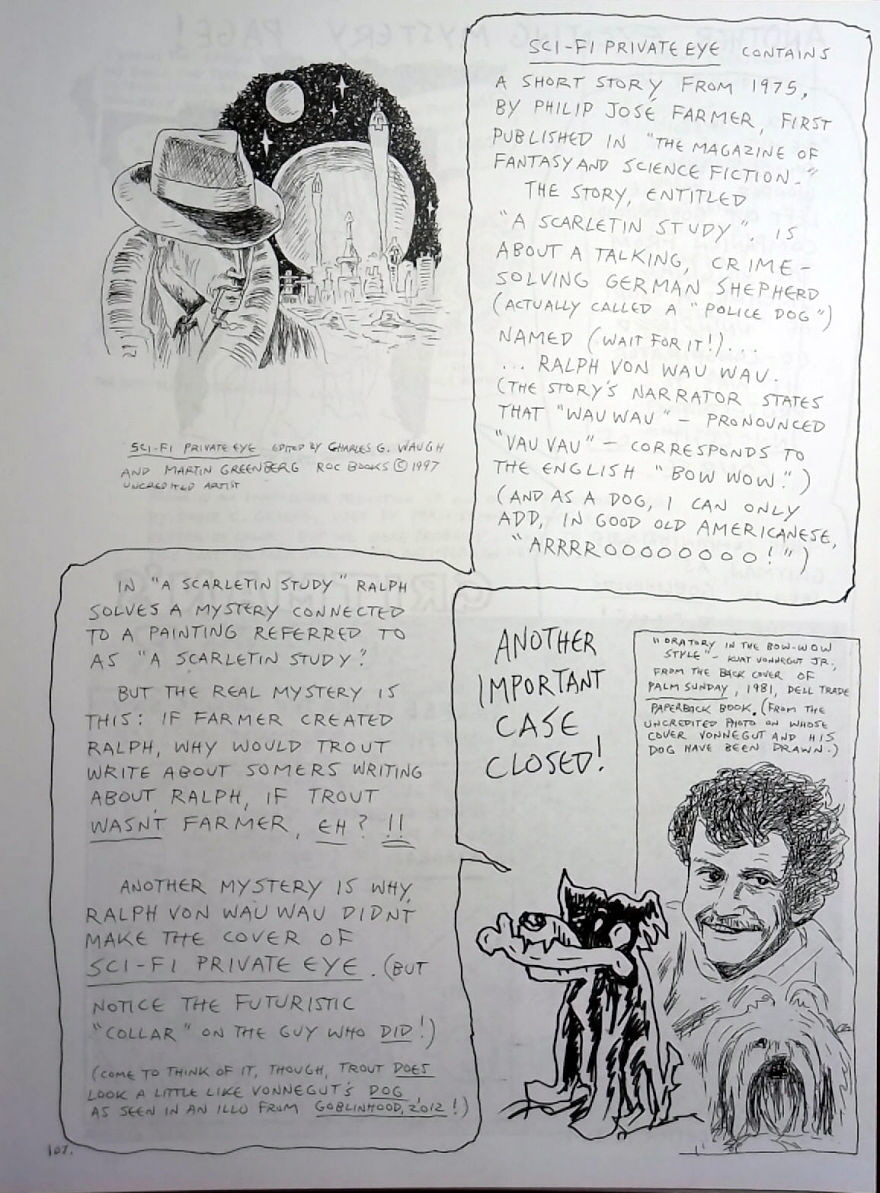 SCI-FI PRIVATE EYE CONTAINS
A SHORT STORY FROM 1975,
BY PHILIP JOSÉ FARMER, FIRST
PUBLISHED IN "THE MAGAZINE OF
FANTASY AND SCIENCE FICTION."
THE STORY, ENTITLED
"A SCARLETIN STUDY". IS
ABOUT A TALKING, CRIME-
SOLVING GERMAN SHEPHERD
(ACTUALLY CALLED A "POLICE DOG")
NAMED (WAIT FOR IT!)...
... RALPH VON WAU WAU.
(THE STORY'S NARRATOR STATES
THAT "WAU WAU" - PRONOUNCED
"VAU VAU" - CORRESPONDS TO
THE ENGLISH "BOW WOW.")
(AND AS A DOG, I CAN ONLY
ADD, IN GOOD OLD AMERICANESE,
"ARRRROOOOOOOO!")
SCI-FI PRIVATE EYE EDITED BY CHARLES G. WAUGH
AND MARTIN GREENBERG ROC BOOKS © 1997
UNCREDITED ARTIST
IN "A SCARLETIN STUDY" RALPH
SOLVES A MYSTERY CONNECTED
TO A PAINTING REFERRED TO
AS "A SCARLETIN STUDY."
BUT THE REAL MYSTERY IS
THIS: IF FARMER CREATED
RALPH, WHY WOULD TROUT
WRITE ABOUT SOMERS WRITING
ABOUT RALPH, IF TROUT
WASN'T FARMER, EH? !!
ANOTHER MYSTERY IS WHY
RALPH VON WAU WAU DIDN'T
MAKE THE COVER OF
SCI-FI PRIVATE EYE. (BUT
NOTICE THE FUTURISTIC
"COLLAR" ON THE GUY WHO DID!)
(COME TO THINK OF IT, THOUGH, TROUT DOES
LOOK A LITTLE LIKE VONNEGUT'S DOG,
AS SEEN IN AN ILLO FROM GOBLINHOOD, 2012!)
ANOTHER
IMPORTANT
CASE
CLOSED!
"ORATORY IN THE BOW-WOW
STYLE" - KURT VONNEGUT JR.,
FROM THE BACK COVER OF
PALM SUNDAY, 1981, DELL TRADE
PAPERBACK BOOK. (FROM THE
UNCREDITED PHOTO ON WHOSE
COVER VONNEGUT AND HIS
DOG HAVE BEEN DRAWN.)
107.